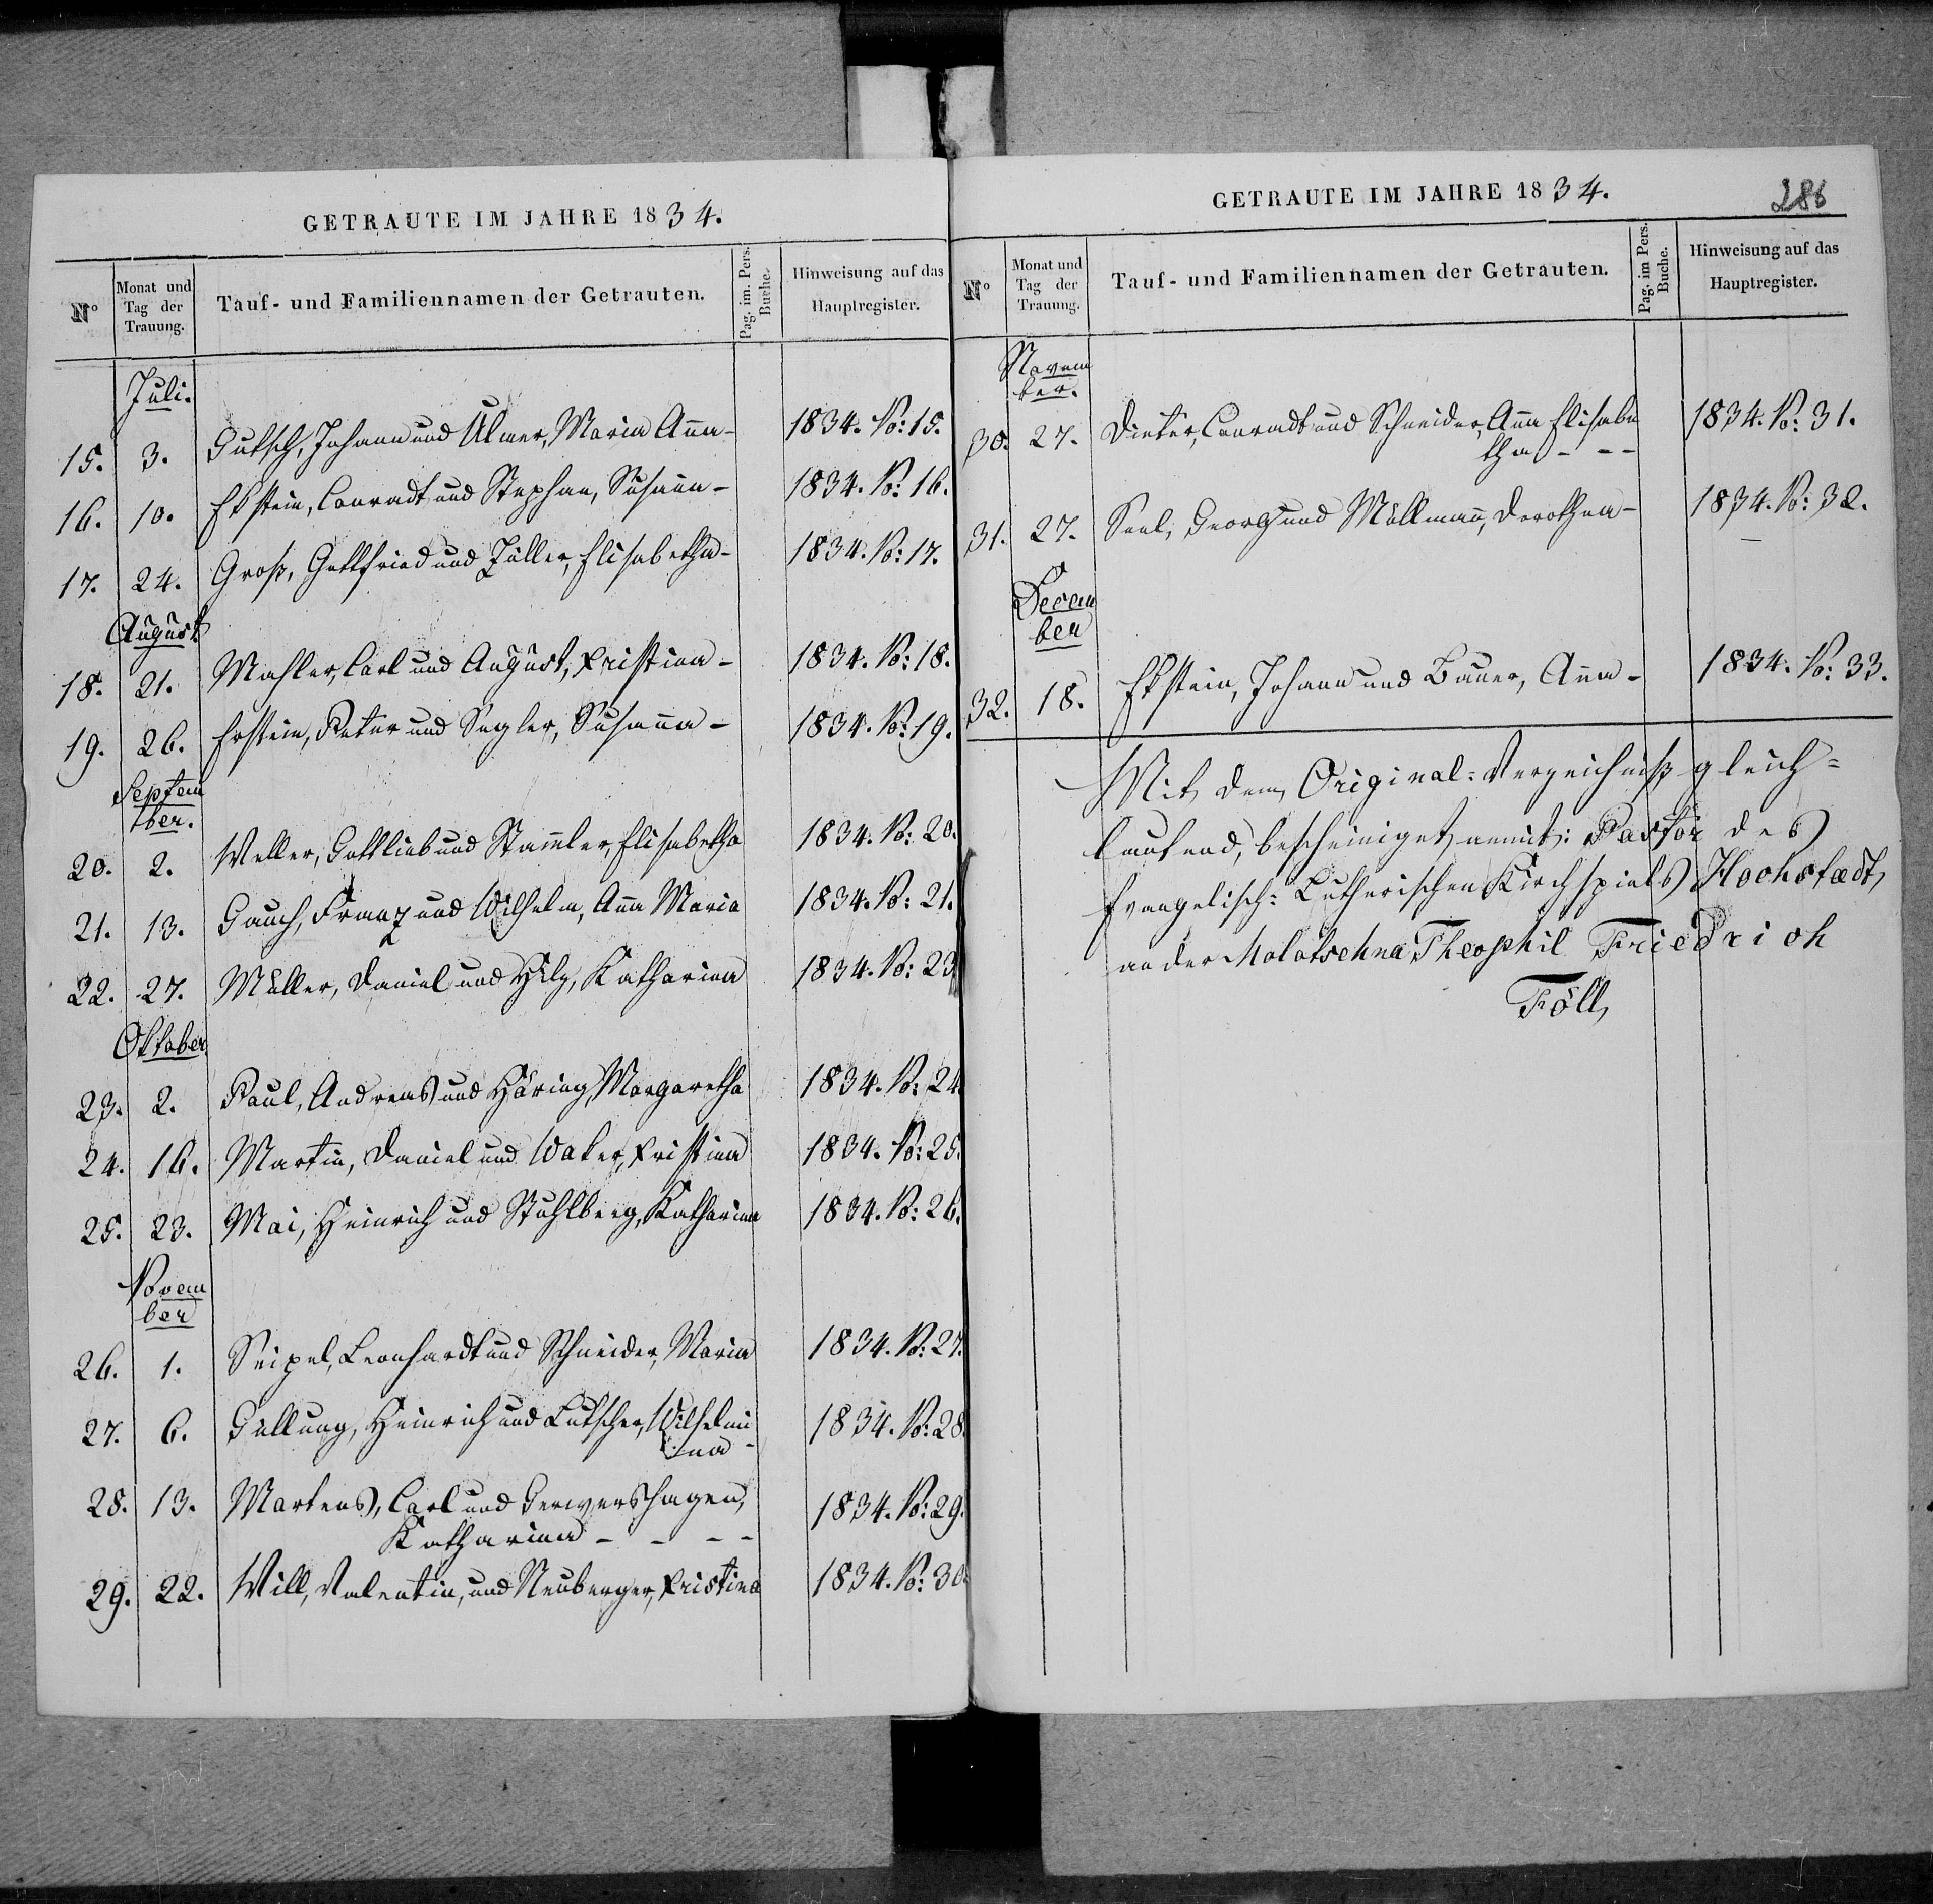 GETRAUTE IM JAHRE 1834.
N° Monat und Tag der Trauung. Tauf- und Familiennamen der Getrauten. Pag. im. Pers. Buche. Hinweisung auf das Hauptregister.
Juli.
15. 3. Gutsch, Johann und Ulmer, Maria Anna- 1834. No: 15.
16. 10. Ekstein, Conradt und Stephan, Susanna- 1834. No: 16.
17. 24. Groß, Gottfried und Züller, Elisabetha- 1834. No: 17.
August
18. 21. Mahler, Carl und August, Kristina- 1834. No: 18.
19. 26. Erstein, Peter und Segler, Susanna- 1834. No: 19.
Septem
ber.
20. 2. Weller, Gottlieb und Stamler, Elisabetha 1834. No: 20.
21. 13. Gauch, Franz und Wilhelm, Anna Maria 1834. No: 21.
22. 27. Müller, Daniel und Hilz, Katharina 1834. No: 23
Oktober
23. 2. Paul, Andreas und Häring, Margaretha 1834. No: 24
24. 16. Martin, Daniel und Waker, Kristina 1834. No: 25.
25. 23. Mai, Heinrich und Stuhlberg, Katharina 1834. No: 26.
Novem
ber
26. 1. Seipel, Leonhardt und Schneider, Maria 1834. No: 27.
27. 6. Güllung, Heinrich und Lutscher, Wilhelmi 1834. No: 28.
na-
28. 13. Martens, Carl und Gerwershagen, 1834. No: 29.
Katharina - - - -
29. 22. Will, Valentin, und Neuberger, Kristina 1834. No: 30.
GETRAUTE IM JAHRE 1834.
286
N° Monat und Tag der Trauung. Tauf- und Familiennamen der Getrauten. Pag. im Pers. Buche. Hinweisung auf das Hauptregister.
Novem
ber.
30. 27. Dieter, Conradt und Schneider, Anna Elisabe 1834. No: 31.
tha - - -
31. 27. Seel, Georg und Müllmann, Dorothea- 1834. No: 32.
Decem
ber
32. 18. Ekstein, Johann und Bauer, Anna- 1834. No: 33.
Mit dem Original-Verzeichniß gleich-
lautend, bescheiniget, Pastor des
Evangelisch-Lutherischen Kirchspiels Hochstaedt,
an der Molotschna Theophil Friedrich
Föll,